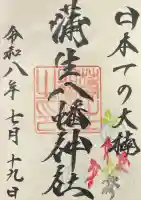 日本一の大楠
蒲生八幡神社
令和八年七月十九日